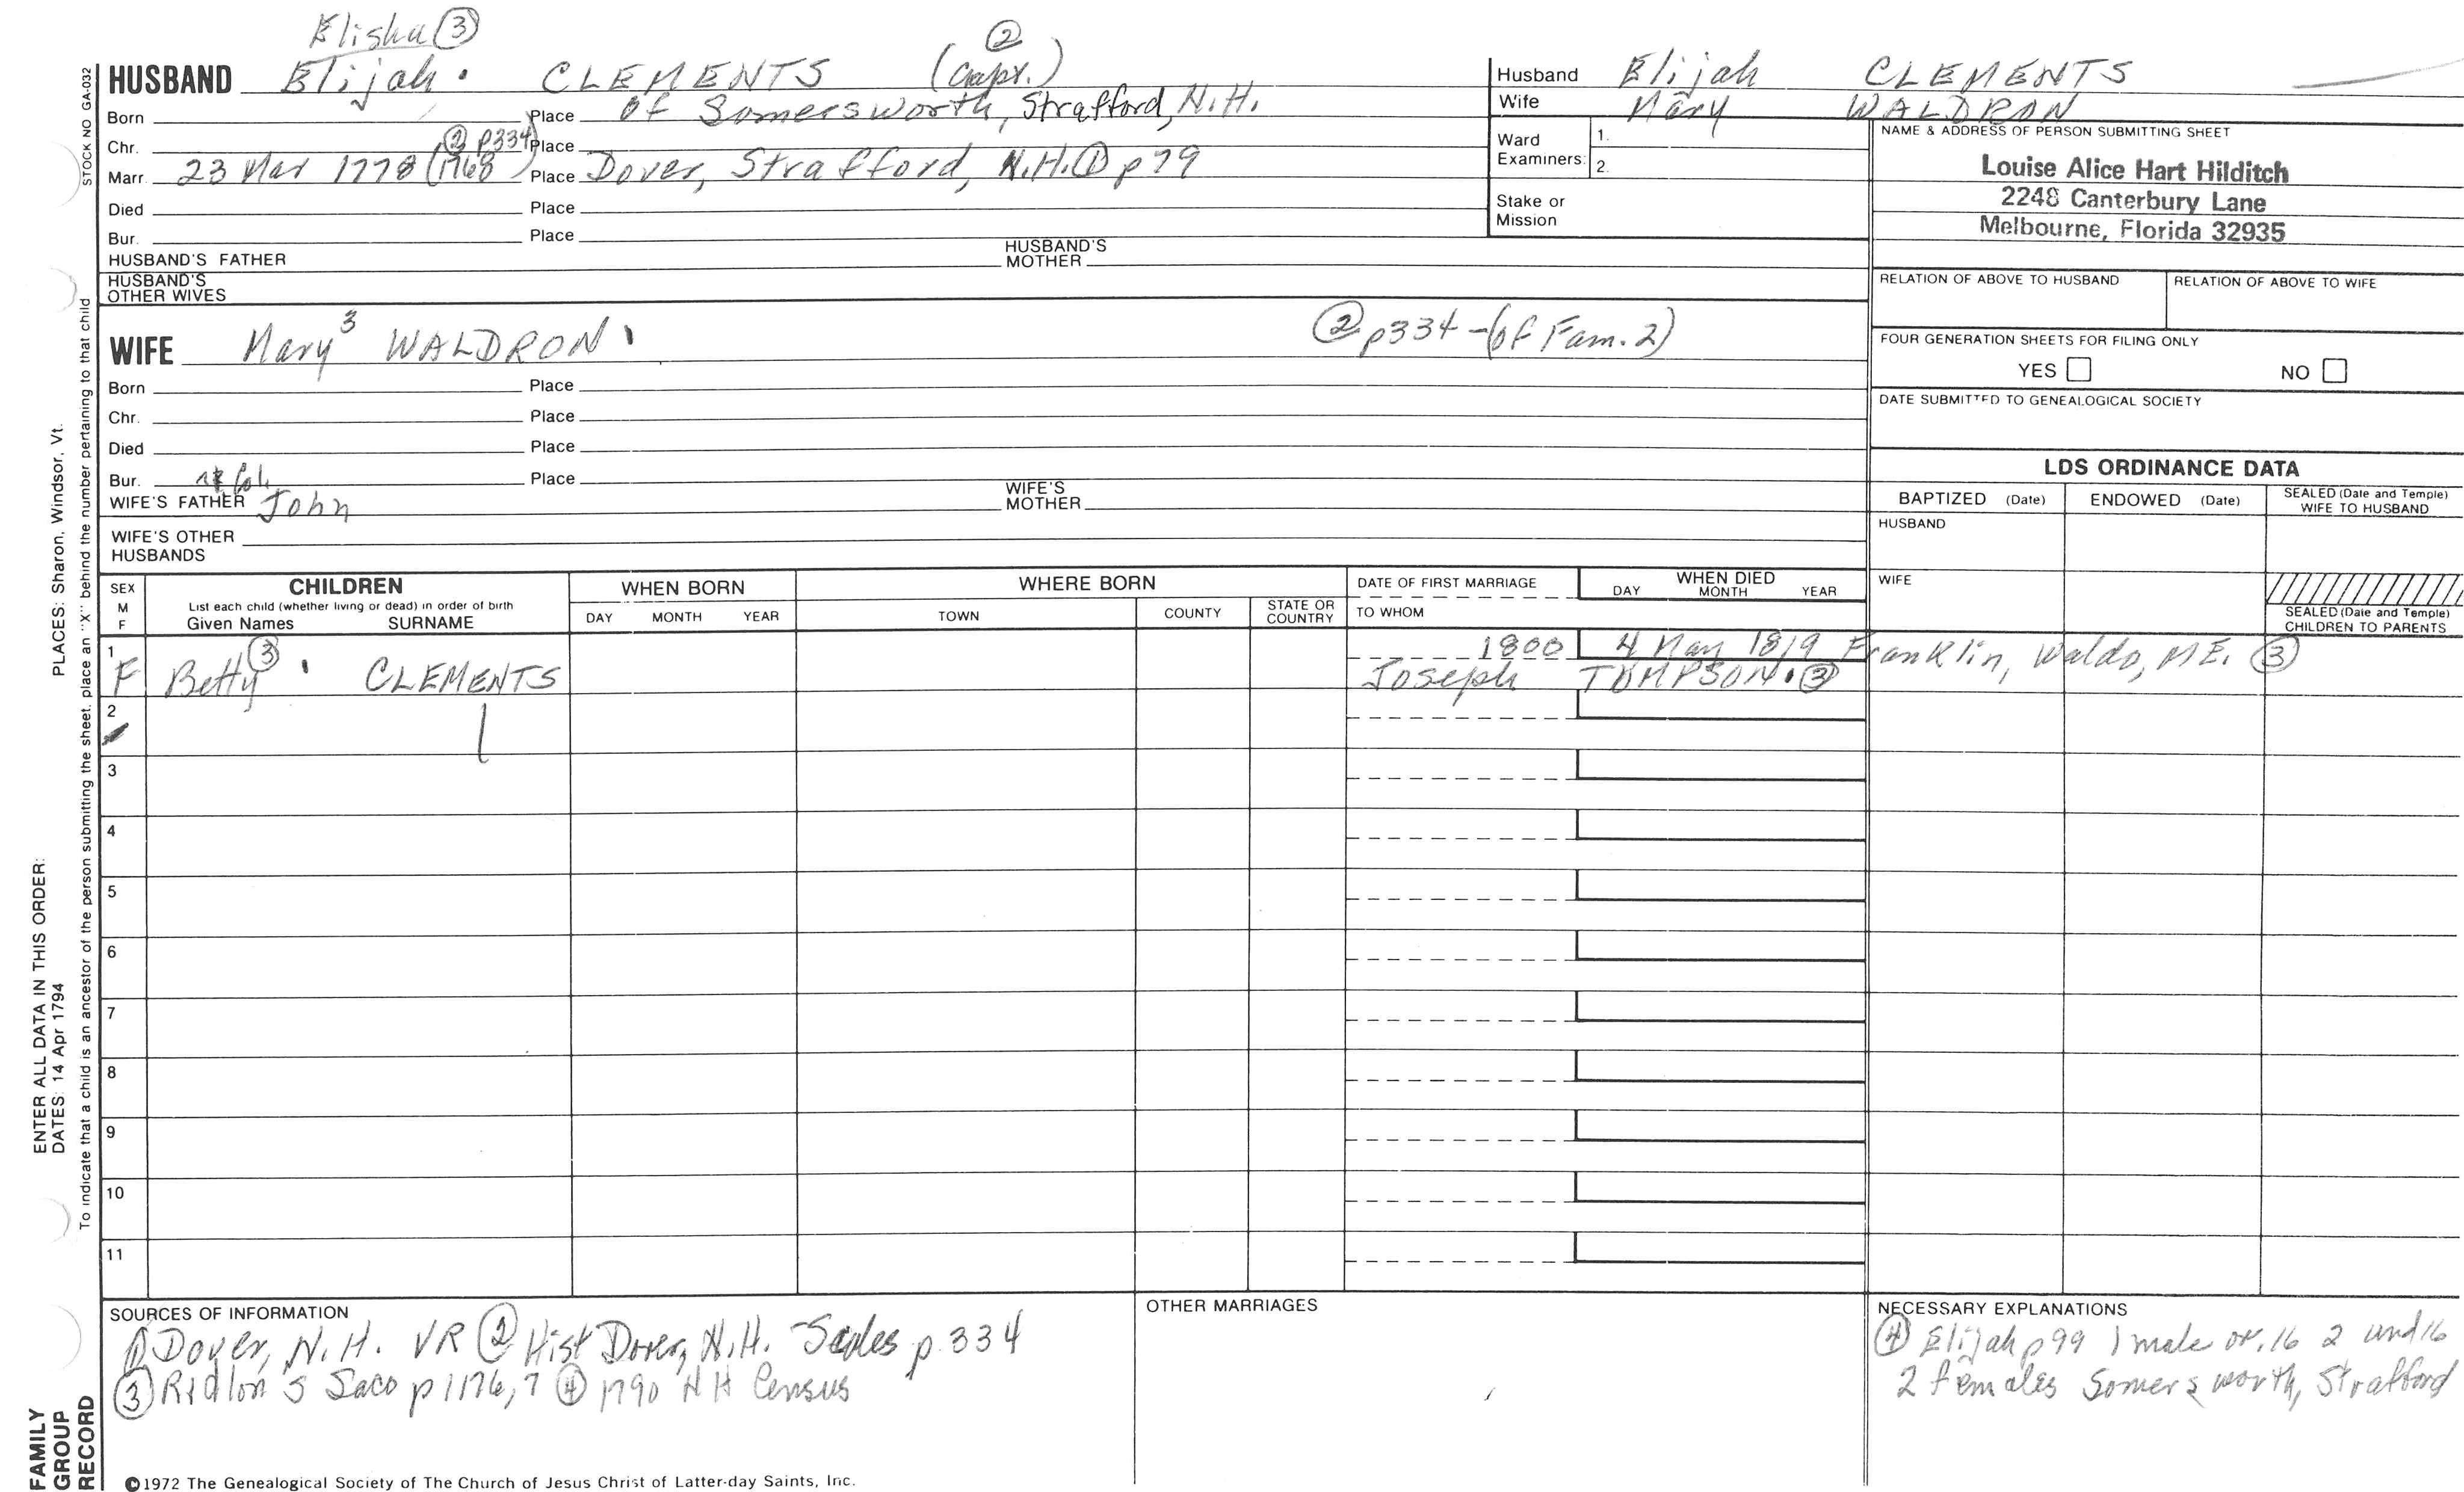 Elisha ③
②
HUSBAND Elijah. CLEMENTS (Capt.)
Born Place of Somersworth, Strafford, N.H.
Chr. ② p334 Place
Marr. 23 Mar 1778 (1768) Place Dover, Strafford, N.H. ① p79
Died Place
Bur. Place
HUSBAND'S FATHER HUSBAND'S MOTHER
HUSBAND'S OTHER WIVES
WIFE Mary³ WALDRON ② p334-(of Fam. 2)
Born Place
Chr. Place
Died Place
Bur. Place
WIFE'S FATHER John WIFE'S MOTHER
WIFE'S OTHER HUSBANDS
Husband Elijah CLEMENTS
Wife Mary WALDRON
Ward Examiners: 1.
2.
Stake or Mission
NAME & ADDRESS OF PERSON SUBMITTING SHEET
Louise Alice Hart Hilditch
2248 Canterbury Lane
Melbourne, Florida 32935
RELATION OF ABOVE TO HUSBAND RELATION OF ABOVE TO WIFE
FOUR GENERATION SHEETS FOR FILING ONLY
YES NO
DATE SUBMITTED TO GENEALOGICAL SOCIETY
LDS ORDINANCE DATA
BAPTIZED (Date) ENDOWED (Date) SEALED (Date and Temple) WIFE TO HUSBAND
HUSBAND
WIFE
SEALED (Date and Temple) CHILDREN TO PARENTS
SEX M F
CHILDREN
List each child (whether living or dead) in order of birth
Given Names SURNAME
WHEN BORN
DAY MONTH YEAR
WHERE BORN
TOWN COUNTY STATE OR COUNTRY
DATE OF FIRST MARRIAGE
TO WHOM
WHEN DIED
DAY MONTH YEAR
1 1800 4 May 1819 Franklin, Waldo, ME. ③
F Betty ③ CLEMENTS Joseph TOMPSON. ③
2
3
4
5
6
7
8
9
10
11
SOURCES OF INFORMATION
① Dover, N.H. VR ② Hist Dover, N.H. - Scales p. 334
③ Ridlon's Saco p1176,7 ④ 1790 NH Census
OTHER MARRIAGES
NECESSARY EXPLANATIONS
④ Elijah p99 1 male ov. 16 2 und 16
2 females Somersworth, Strafford
©1972 The Genealogical Society of The Church of Jesus Christ of Latter-day Saints, Inc.
STOCK NO GA-032
To indicate that a child is an ancestor of the person submitting the sheet, place an "X" behind the number pertaining to that child
ENTER ALL DATA IN THIS ORDER:
DATES: 14 Apr 1794 PLACES: Sharon, Windsor, Vt.
FAMILY
GROUP
RECORD